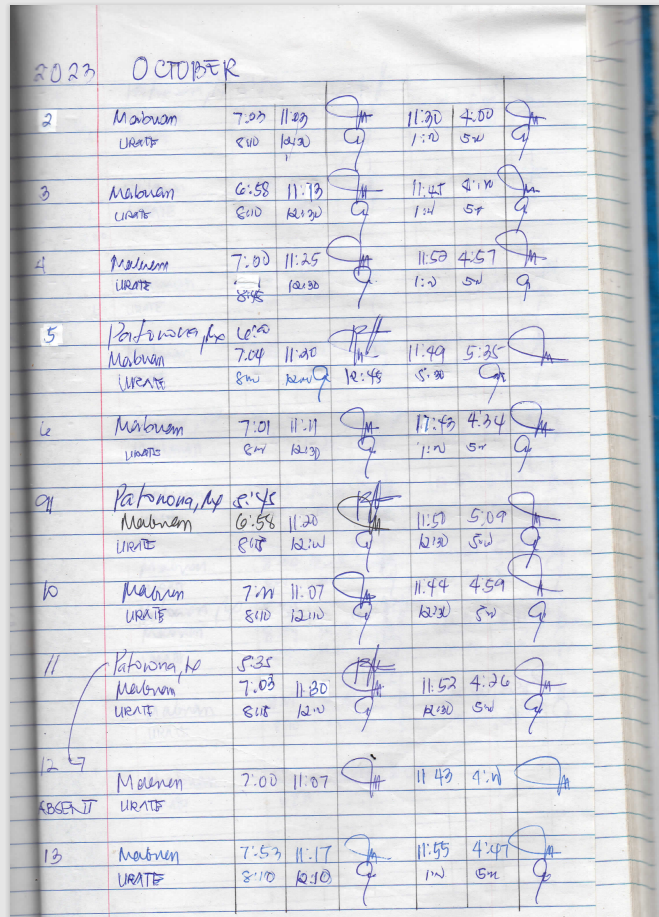 2023 OCTOBER
2 Mabunan 7:03 11:03 11:30 4:00
URATE 8:10 12:30 1:00 5:00
3 Mabunan 6:58 11:13 11:45
URATE 8:10 12:30 1:00
4 7:00 11:25 11:52 4:57
URATE 8:45 12:30 1:00 5:00
5 Patonona,
Mabunan 7:04 11:20 11:49 5:35
URATE 8:00 12:45 5:30
6 Mabunan 7:01 11:11 4:34
URATE 8:00 12:30 1:00 5:00
9 Patonona, 5:45
Mabunan 6:58 11:20 11:50 5:09
URATE 8:15 12:00 12:30 5:00
10 Mabunan 7:00 11:07 11:44 4:59
URATE 8:10 12:10 12:30 5:00
11 Patonona, 5:35
Mabunan 7:03 11:30 11:52 4:26
URATE 8:15 12:00 12:30 5:00
12 7:00 11:07 11:43
ABSENT URATE
13 Mabunan 7:53 11:17 11:55 4:47
URATE 8:10 12:10 1:00 5:00